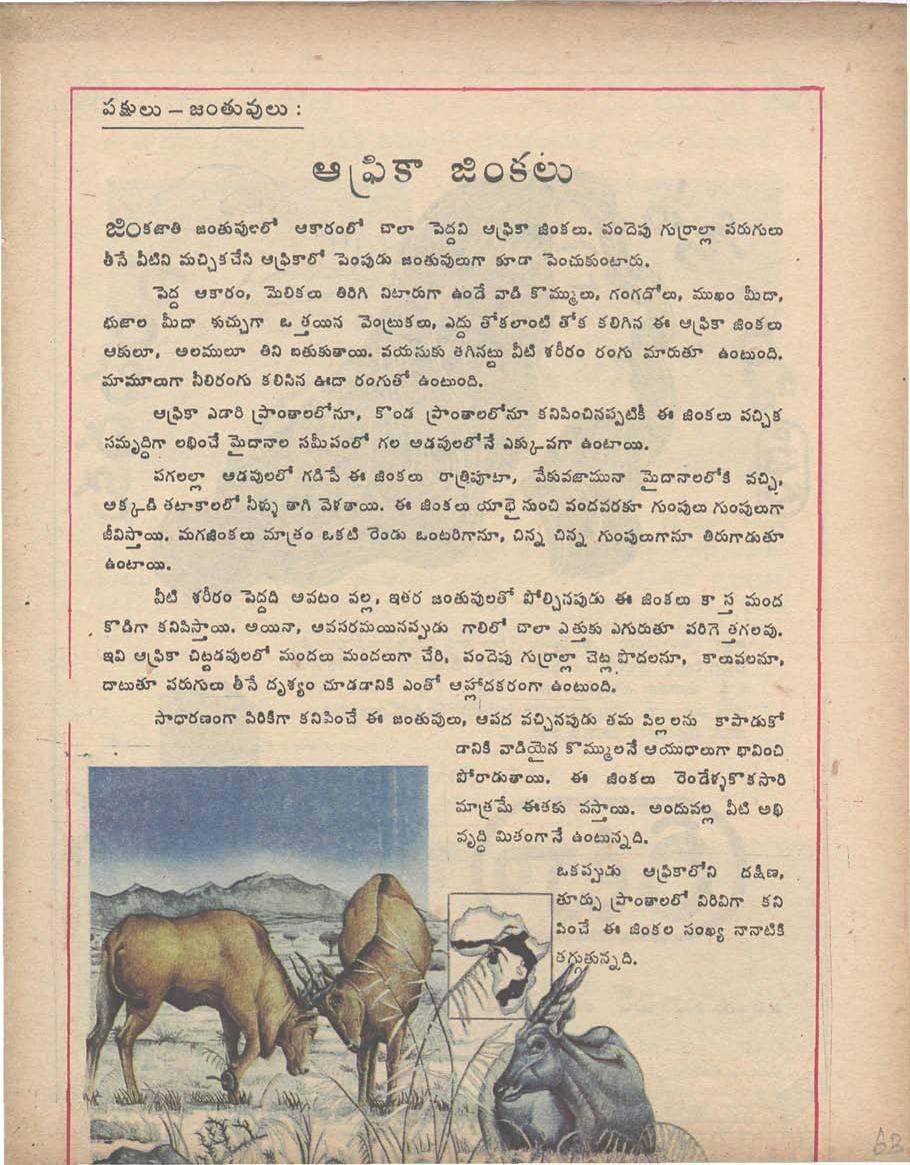 పక్షులు – జంతువులు :
ఆఫ్రికా జింకలు
జింకజాతి జంతువులలో ఆకారంలో చాలా పెద్దవి ఆఫ్రికా జింకలు. పందెపు గుర్రాల్లా పరుగులు
తీసే వీటిని మచ్చికచేసి ఆఫ్రికాలో పెంపుడు జంతువులుగా కూడా పెంచుకుంటారు.
పెద్ద ఆకారం, మెలికలు తిరిగి నిటారుగా ఉండే వాడి కొమ్ములు, గంగడోలు, ముఖం మీదా,
భుజాల మీదా కుచ్చుగా ఒత్తయిన వెంట్రుకలు, ఎద్దు తోకలాంటి తోక కలిగిన ఈ ఆఫ్రికా జింకలు
ఆకులూ, అలములూ తిని బతుకుతాయి. వయసుకు తగినట్టు వీటి శరీరం రంగు మారుతూ ఉంటుంది.
మామూలుగా నీలిరంగు కలిసిన ఊదా రంగుతో ఉంటుంది.
ఆఫ్రికా ఎడారి ప్రాంతాలలోనూ, కొండ ప్రాంతాలలోనూ కనిపించినప్పటికీ ఈ జింకలు పచ్చిక
సమృద్ధిగా లభించే మైదానాల సమీపంలో గల అడవులలోనే ఎక్కువగా ఉంటాయి.
పగలల్లా అడవులలో గడిపే ఈ జింకలు రాత్రిపూటా, వేకువజామునా మైదానాలలోకి వచ్చి,
అక్కడి తటాకాలలో నీళ్ళు తాగి వెళతాయి. ఈ జింకలు యాభై నుంచి వందవరకూ గుంపులు గుంపులుగా
జీవిస్తాయి. మగజింకలు మాత్రం ఒకటి రెండు ఒంటరిగానూ, చిన్న చిన్న గుంపులుగానూ తిరుగాడుతూ
ఉంటాయి.
వీటి శరీరం పెద్దది అవటం వల్ల, ఇతర జంతువులతో పోల్చినపుడు ఈ జింకలు కాస్త మంద
కొడిగా కనిపిస్తాయి. అయినా, అవసరమయినప్పుడు గాలిలో చాలా ఎత్తుకు ఎగురుతూ పరిగెత్తగలవు.
ఇవి ఆఫ్రికా చిట్టడవులలో మందలు మందలుగా చేరి, పందెపు గుర్రాల్లా చెట్ల పొదలనూ, కాలువలనూ,
దాటుతూ పరుగులు తీసే దృశ్యం చూడడానికి ఎంతో ఆహ్లాదకరంగా ఉంటుంది.
సాధారణంగా పిరికిగా కనిపించే ఈ జంతువులు, ఆపద వచ్చినపుడు తమ పిల్లలను కాపాడుకో
డానికి వాడియైన కొమ్ములనే ఆయుధాలుగా భావించి
పోరాడుతాయి. ఈ జింకలు రెండేళ్ళకొకసారి
మాత్రమే ఈతకు వస్తాయి. అందువల్ల వీటి అభి
వృద్ధి మితంగానే ఉంటున్నది.
ఒకప్పుడు ఆఫ్రికాలోని దక్షిణ,
తూర్పు ప్రాంతాలలో విరివిగా కని
పించే ఈ జింకల సంఖ్య నానాటికి
తగ్గుతున్నది.
63